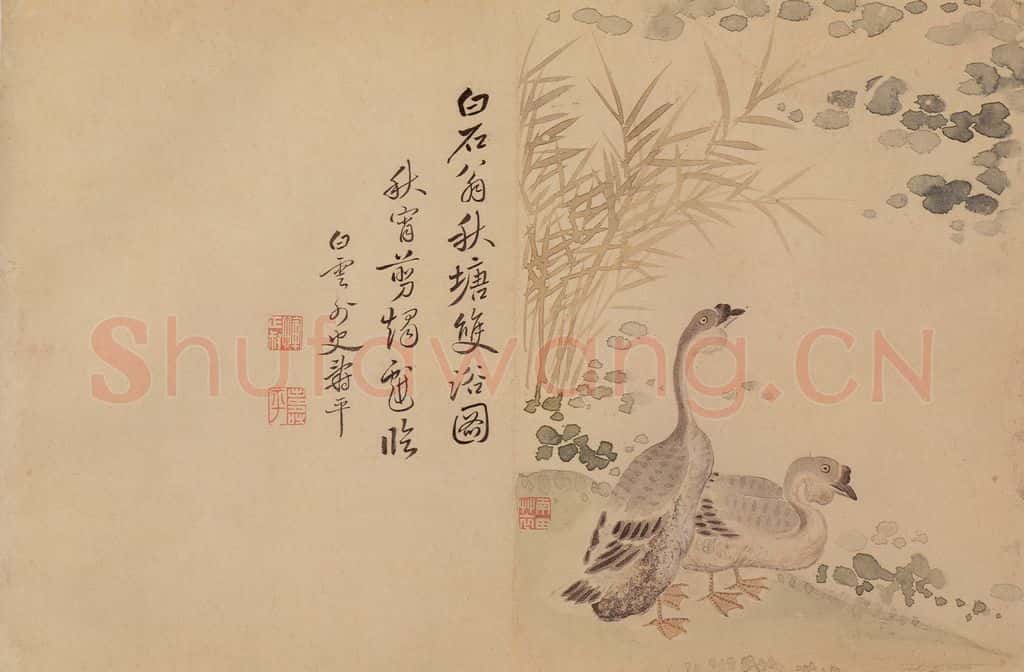 白石翁秋塘雙浴圖
秋宵剪燭戲臨
白雲外史壽平
壽平
Shufawang.CN